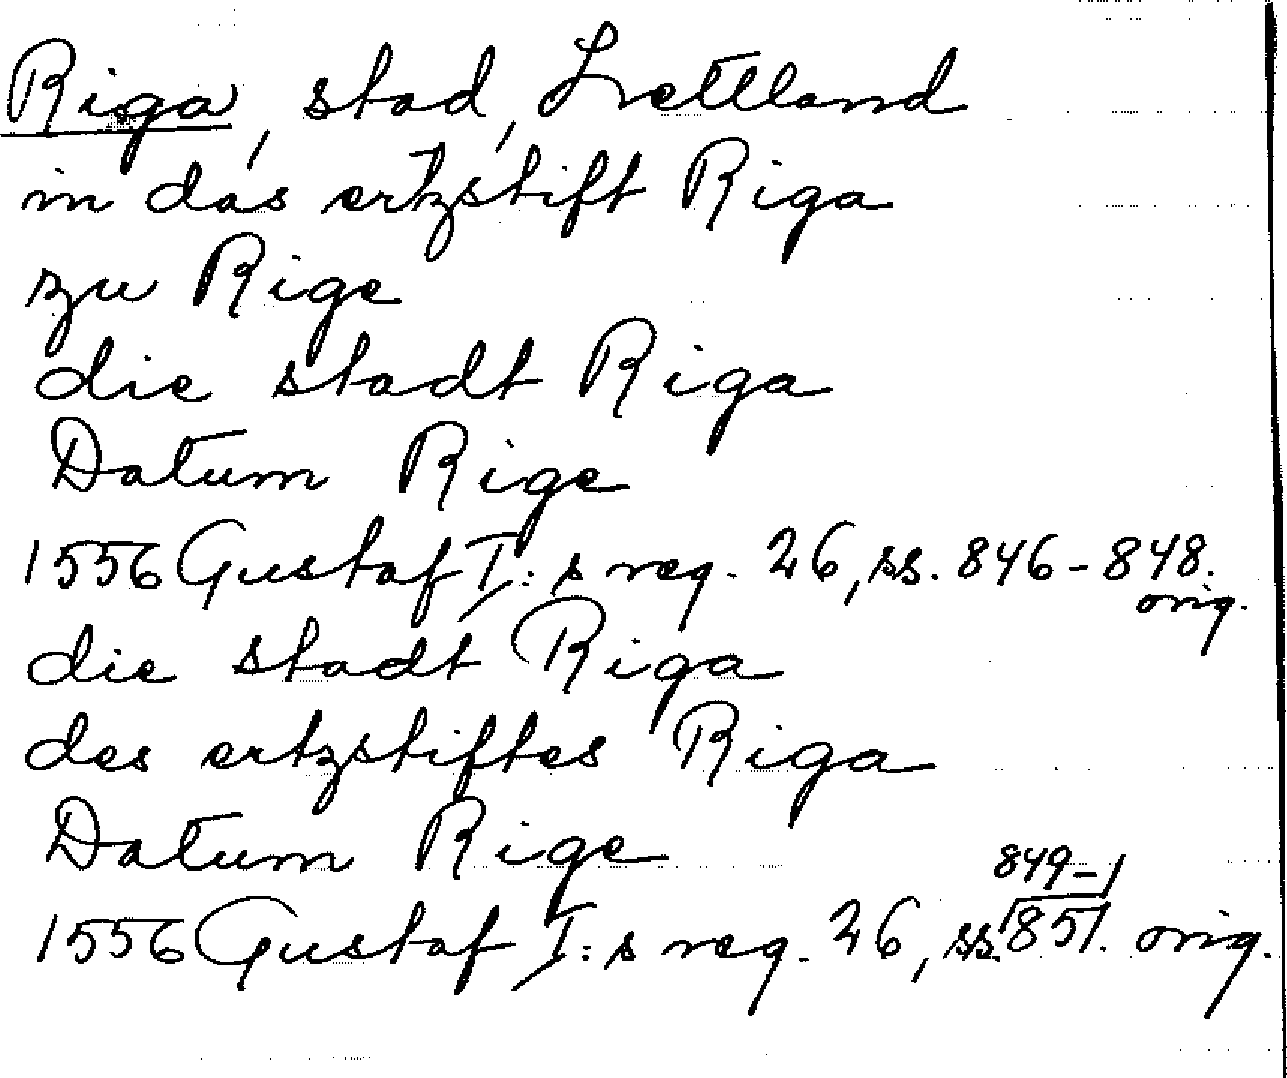 Riga, stad, Lettland
in das ertzstift Riga
zu Rige
die stadt Riga
Datum Rige
1556 Gustaf I:s reg. 26, ss. 846-848.
orig.
die stadt Riga
des ertzstiftes Riga
Datum Rige
849-
1556 Gustaf I:s reg. 26, ss. 851. orig.